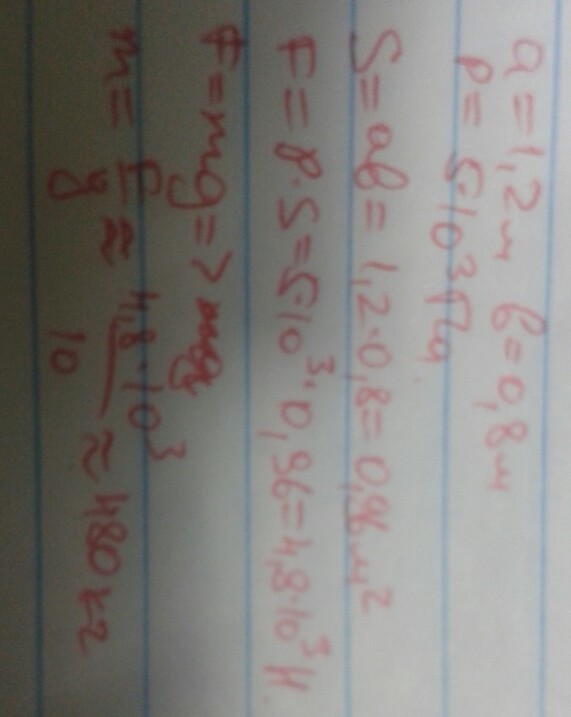 a = 1,2 м b = 0,8 м
p = 5·10³ Па
S = ab = 1,2·0,8 = 0,96 м²
F = p·S = 5·10³·0,96 = 4,8·10³ Н.
F = mg =>
m = F/g ≈ 4,8·10³/10 ≈ 480 кг